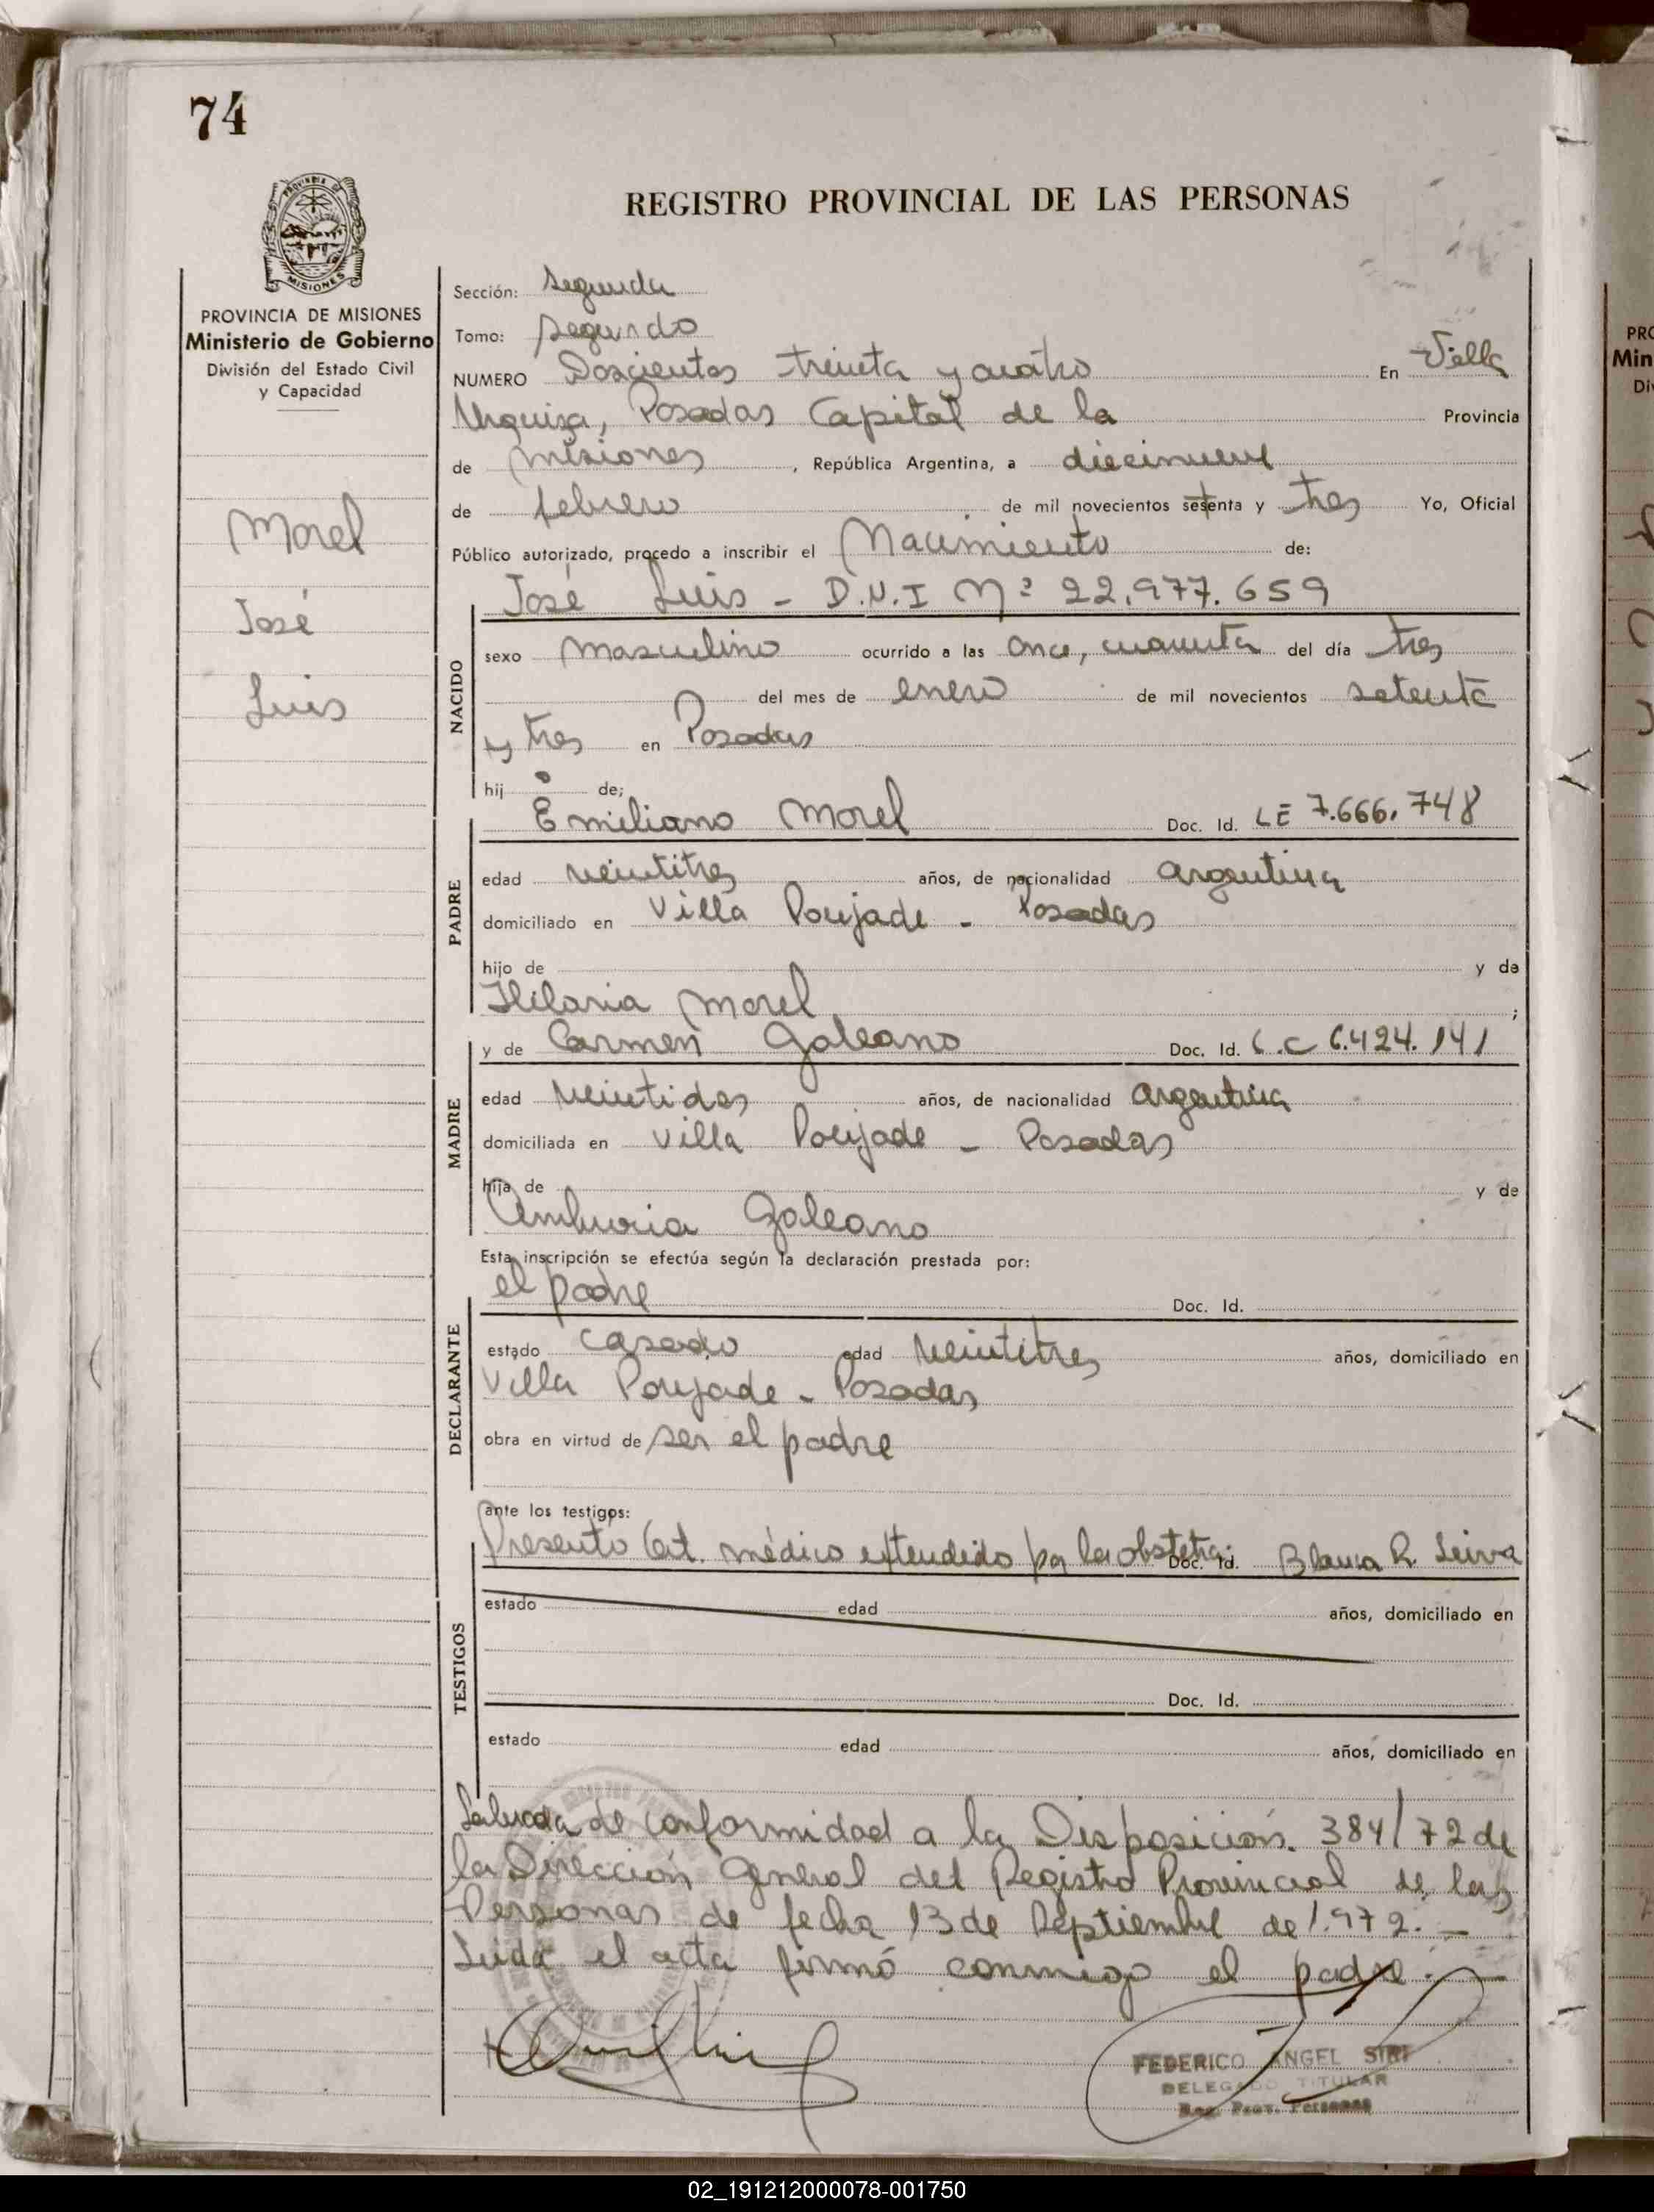 74
REGISTRO PROVINCIAL DE LAS PERSONAS
PROVINCIA DE MISIONES
Ministerio de Gobierno
División del Estado Civil
y Capacidad
Morel
José
Luis
Sección: Segunda
Tomo: Segundo
NUMERO Doscientos treinta y cuatro En Villa
Urquiza, Posadas Capital de la Provincia
de Misiones, República Argentina, a diecinueve
de febrero de mil novecientos setenta y tres Yo, Oficial
Público autorizado, procedo a inscribir el Nacimiento de:
José Luis - D.N.I Nº 22.977.659
NACIDO
sexo masculino ocurrido a las once, cuarenta del día tres
del mes de enero de mil novecientos setenta
y tres en Posadas
hijo de;
Emiliano Morel Doc. Id. LE 7.666.748
PADRE
edad veintitres años, de nacionalidad argentina
domiciliado en Villa Poujade - Posadas
hijo de y de
Hilaria Morel ;
y de Carmen Galeano Doc. Id. C.C 6.424.141
MADRE
edad veintidos años, de nacionalidad argentina
domiciliada en Villa Poujade - Posadas
hija de y de
Galeano
Esta inscripción se efectúa según la declaración prestada por:
el padre Doc. Id.
DECLARANTE
estado casado edad veintitres años, domiciliado en
Villa Poujade - Posadas
obra en virtud de ser el padre
ante los testigos:
Presento Cert. médico extendido por la obstetra: Doc. Id. Blanca R. Leiva
TESTIGOS
estado edad años, domiciliado en
Doc. Id.
estado edad años, domiciliado en
de conformidad a la Disposición. 384/72 de
la Dirección General del Registro Provincial de las
Personas de fecha 13 de Septiembre de 1.972. -
Leida el acta firmó conmigo el padre. -
FEDERICO ANGEL SIRI
DELEGADO TITULAR
Reg. Prov. Personas
PRO
Min
Div
02_191212000078-001750